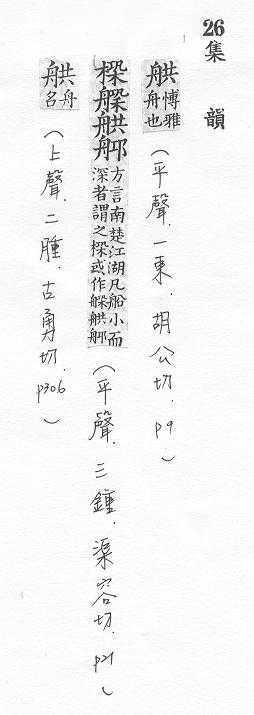 26集韻
舼愽雅舟也(平聲.一東.胡公切.p9)
㮨舼方言南楚江湖凡船小而深者謂之㮨或作舼(平聲.三鍾.渠容切.p21)
舼舟名(上聲.二腫.古勇切.p306)